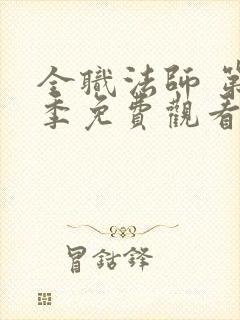 全職法師 第
季免費觀看
冒鈷鋒